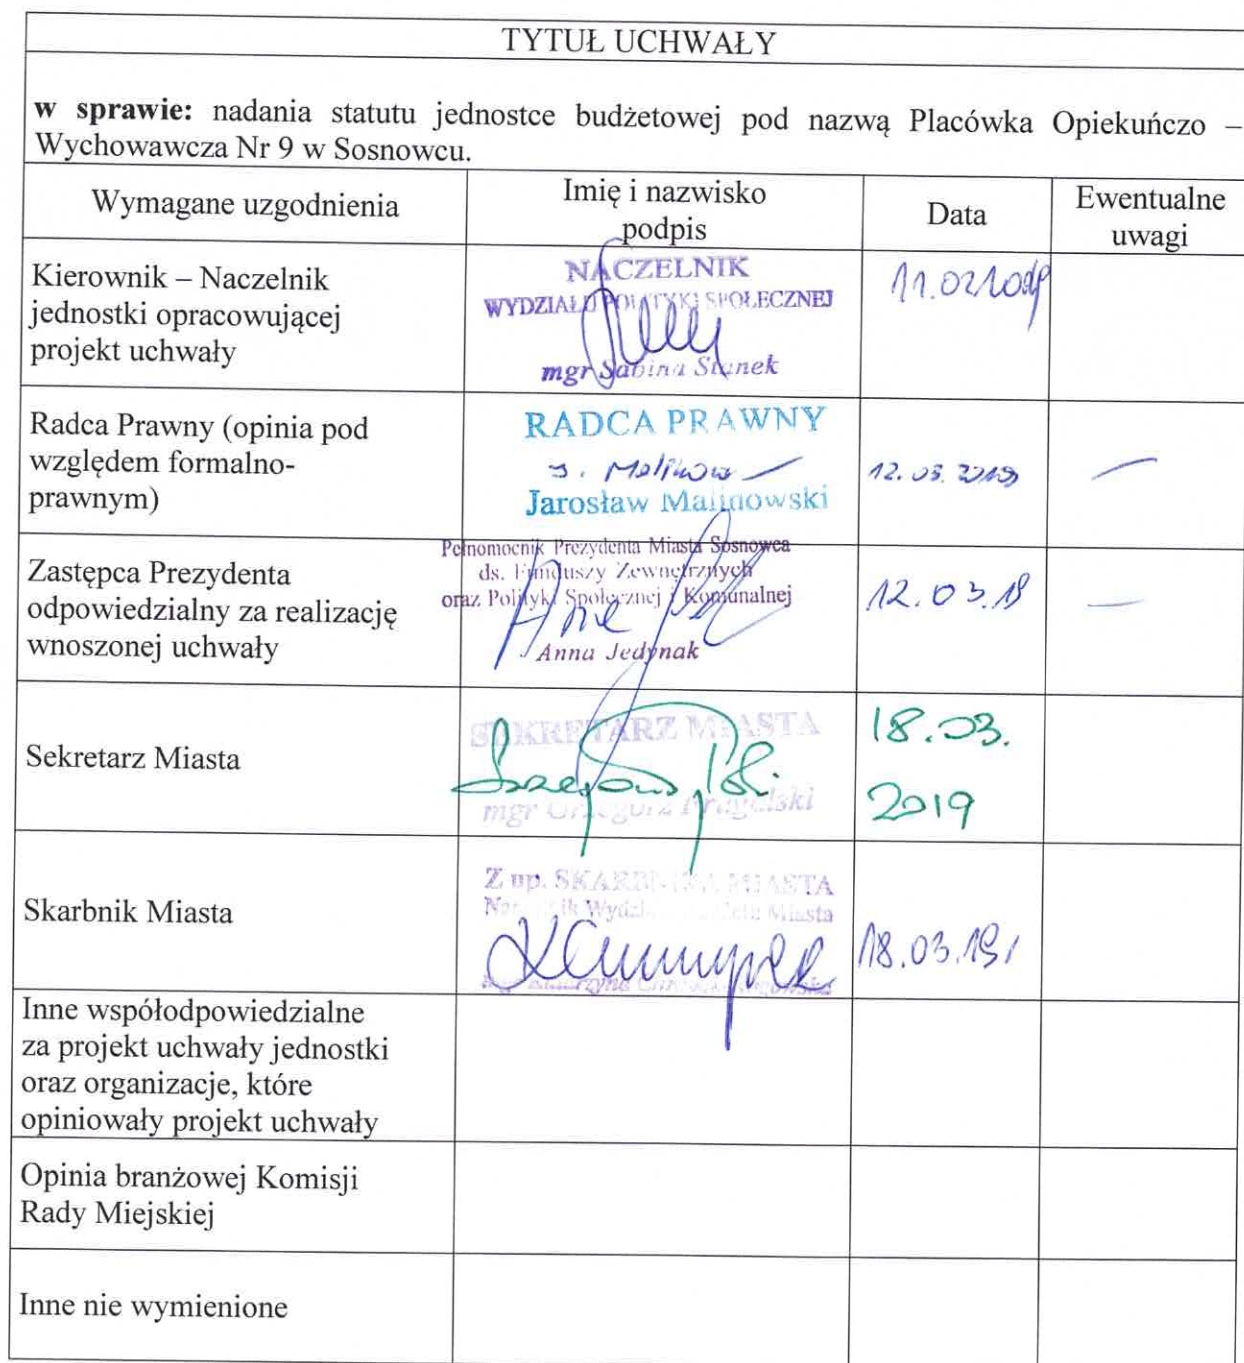 TYTUŁ UCHWAŁY
w sprawie: nadania statutu jednostce budżetowej pod nazwą Placówka Opiekuńczo –
Wychowawcza Nr 9 w Sosnowcu.
Wymagane uzgodnienia
Imię i nazwisko
podpis
Data
Ewentualne
uwagi
Kierownik – Naczelnik
jednostki opracowującej
projekt uchwały
NACZELNIK
WYDZIAŁU POLITYKI SPOŁECZNEJ
mgr Sabina Stanek
Radca Prawny (opinia pod
względem formalno-
prawnym)
RADCA PRAWNY
Jarosław Malinowski
12.03.2019
—
Zastępca Prezydenta
odpowiedzialny za realizację
wnoszonej uchwały
Pełnomocnik Prezydenta Miasta Sosnowca
ds. Funduszy Zewnętrznych
oraz Polityki Społecznej i Komunalnej
Anna Jedynak
12.03.19
—
Sekretarz Miasta
SEKRETARZ MIASTA
mgr Grzegorz
18.03.
2019
Skarbnik Miasta
Z up. SKARBNIKA MIASTA
Miasta
18.03.19
Inne współodpowiedzialne
za projekt uchwały jednostki
oraz organizacje, które
opiniowały projekt uchwały
Opinia branżowej Komisji
Rady Miejskiej
Inne nie wymienione